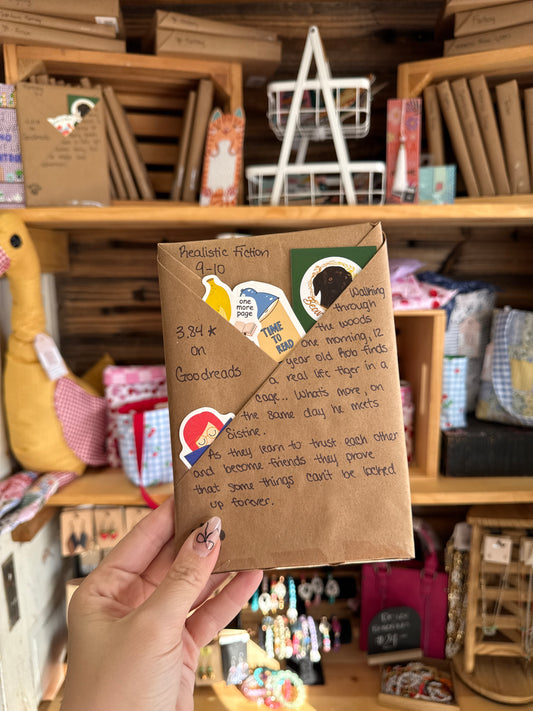 Realistic Fiction
9-10
3.84 ★
on
Goodreads
one
more
page
TIME
TO
READ
Walking
through
the woods
one morning, 12
year old Rob finds
a real life tiger in a
cage... Whats more, on
the same day he meets
Sistine.
As they learn to trust each other
and become friends they prove
that some things can't be locked
up forever.
Fantasy